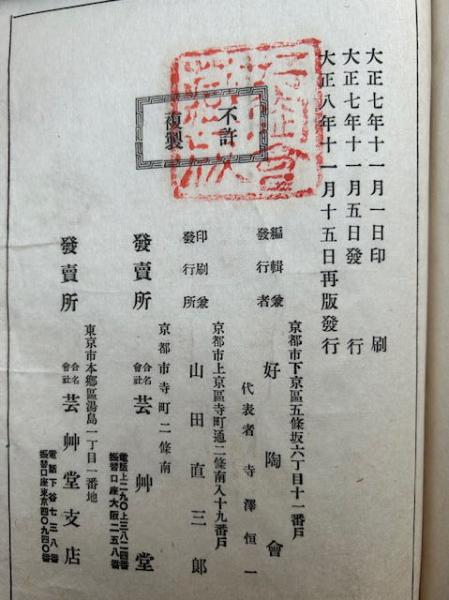 大正七年十一月一日印刷
大正七年十一月五日發行
大正八年十一月十五日再版發行
不許
複製
編輯兼
發行者
京都市下京區五條坂六丁目十一番戸
好陶會
代表者 寺澤恒一
印刷兼
發行所
京都市上京區寺町通二條南入十九番戸
山田直三郎
發賣所
京都市寺町二條南
合名
會社
芸艸堂
電話上二九〇上三八二四番
振替口座大阪二五八番
發賣所
東京市本鄉區湯島一丁目一番地
合名
會社
芸艸堂支店
電話下谷七三八番
振替口座東京四〇九四〇番